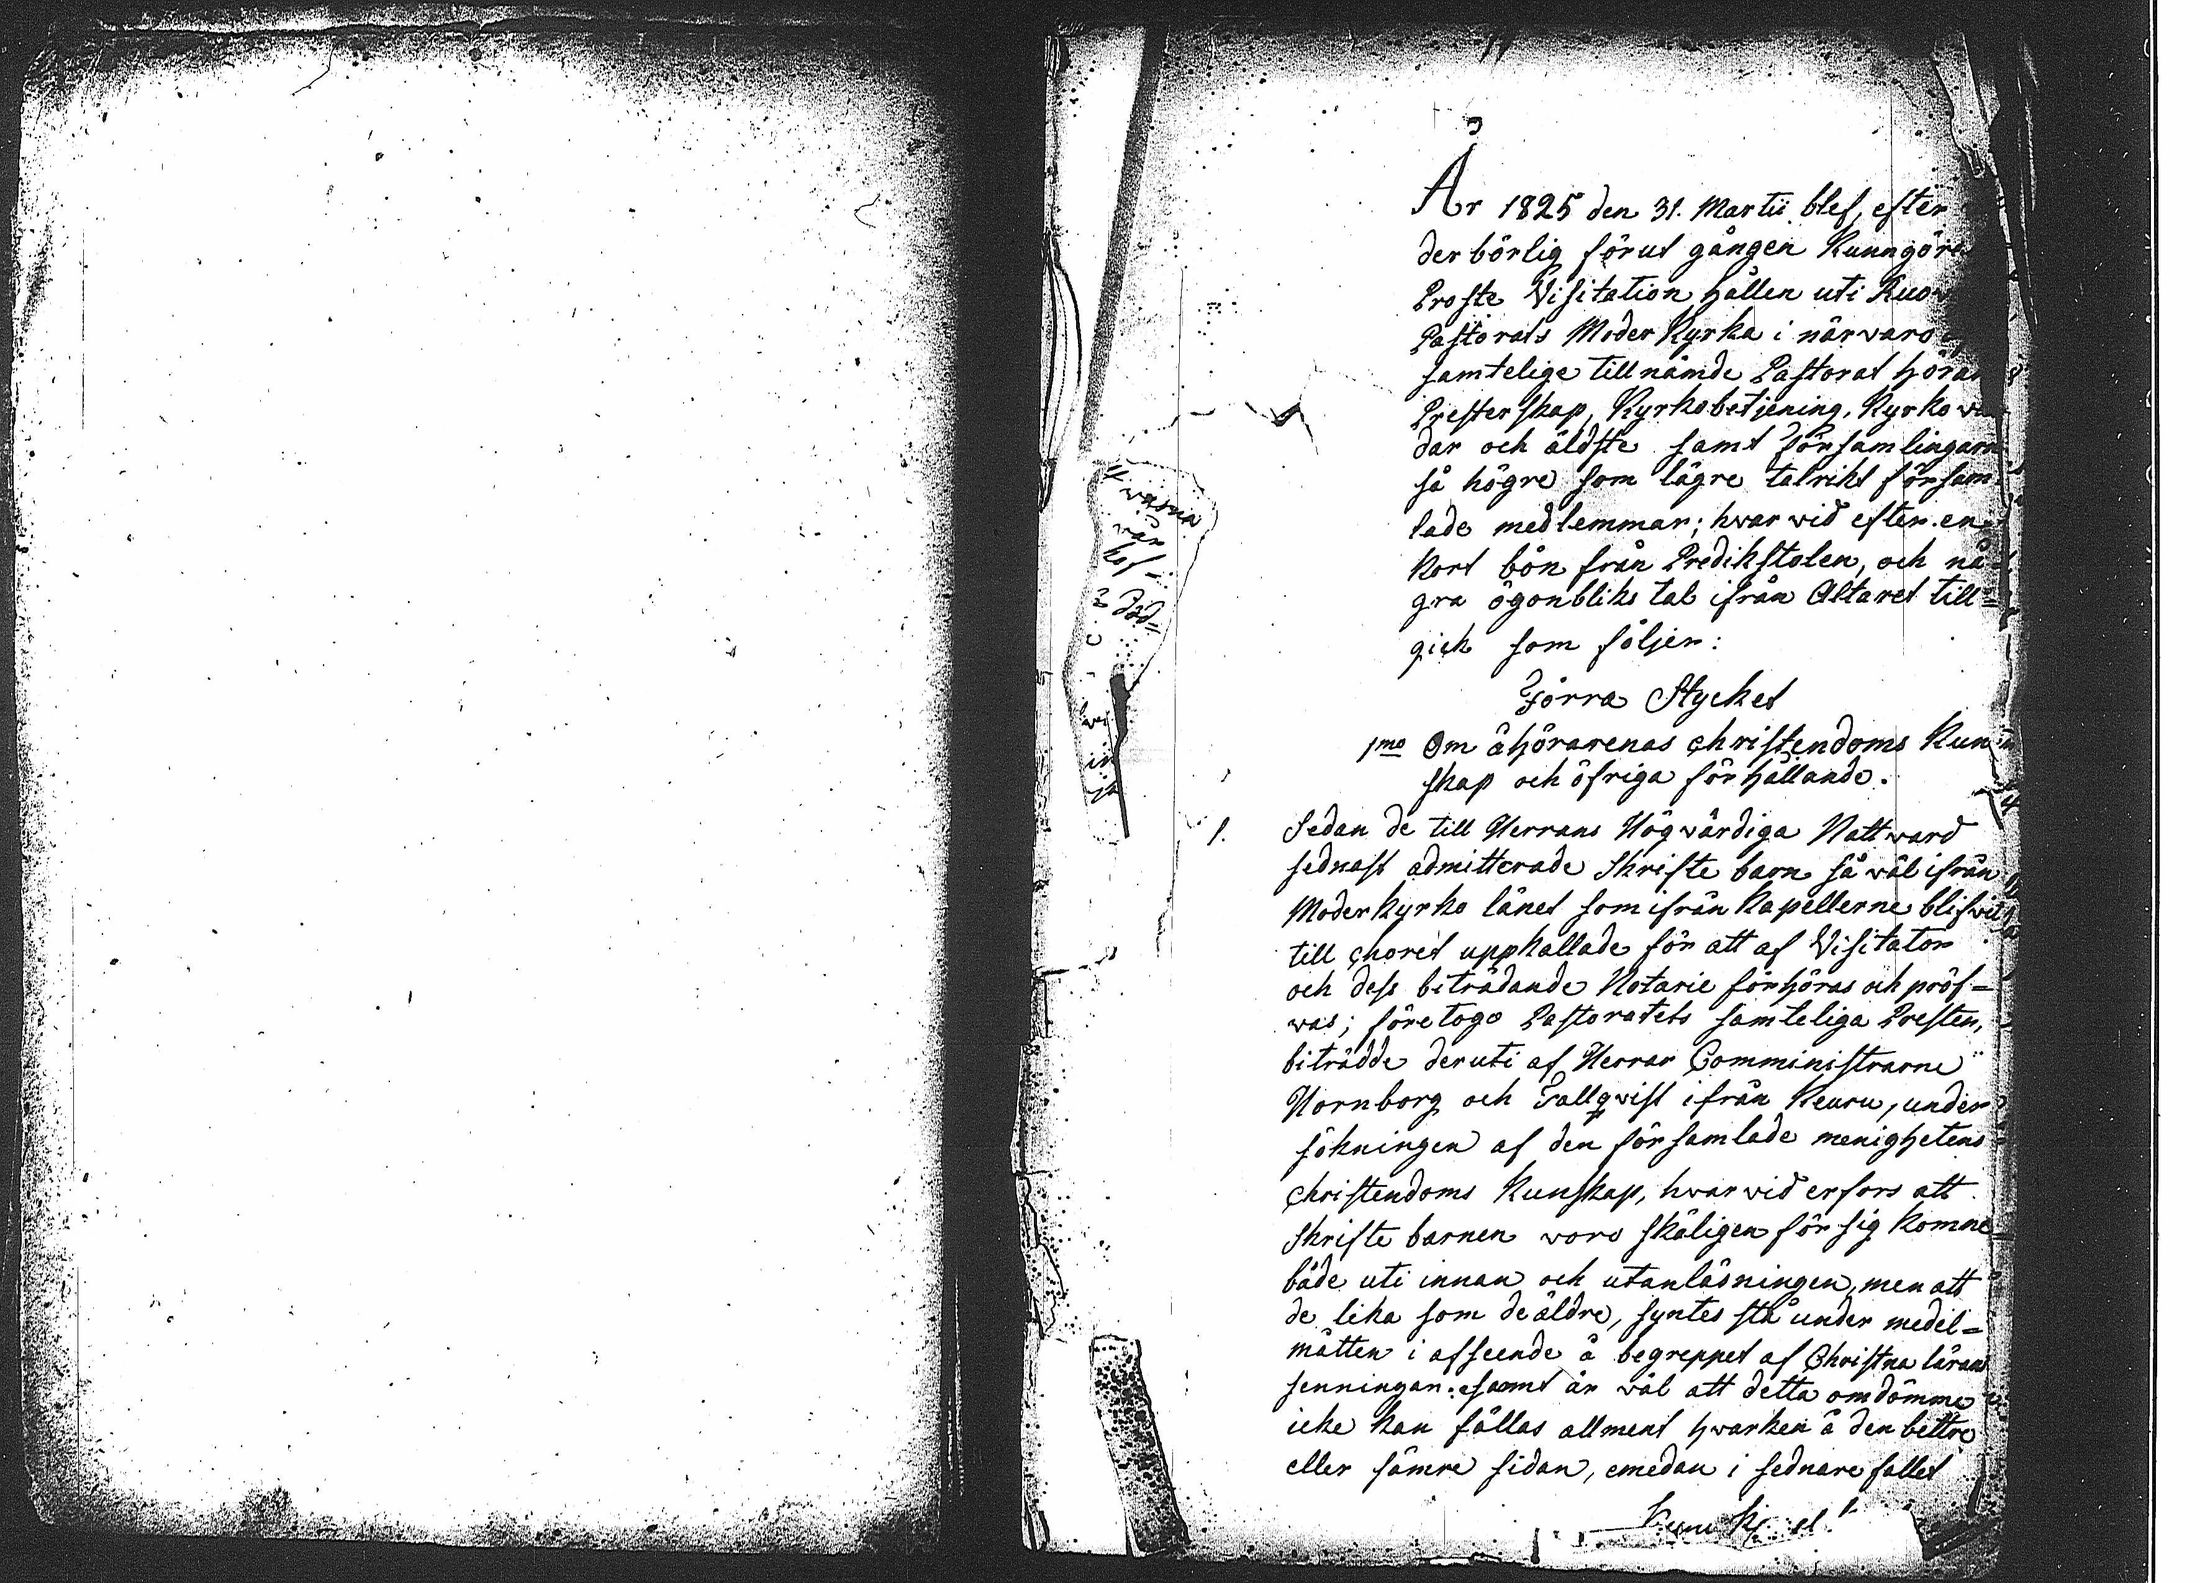 År 1825 den 31. Martii blef, efter
derbörlig förut gången Kunngöre
Proste Visitation hållen uti Ruov
Pastorats Moder Kyrka i närvaro
samtelige till nämde Pastorat höran
Presterskap, Kyrkobetjening, Kyrko vär
dar och äldste samt Församlingarn
så högre som lägre talrikt församl
lade medlemmar; hvarvid efter en
Kort bön från Predikstolen, och nå=
gra ögonbliks tal ifrån Altaret till=
gick som följer:
Förra Stycket
1mo Om åhörarenas Christendoms Kun
skap och öfriga förhållande.
1. Sedan de till Herrans Högvärdiga Nattvard
sednast admitterade Skriftebarn så väl ifrån
Moderkyrko länet som ifrån Kapellerne blifvit
till Choret uppkallade för att af Visitator
och dess biträdande Notarie förhöras och pröf=
vas; företogo Pastoratets samteliga Prester,
biträdde deruti af Herrar Comministrarne
Hornborg och Fallqvist ifrån Keuru, under
sökningen af den församlade menighetens
Christendoms Kunskap, hvarvid erfors att
Skriftebarnen voro skäligen försigkomne
både uti innan och utanläsningen, men att
de lika som de äldre, syntes stå under medel=
måtten i afseende å begreppet af Christna lärans
senningar: samt är väl att detta omdömme
icke kan fällas allment hvarken å den bettre
eller sämre sidan, emedan i sednare fallet
våsna
när
haf=
död=